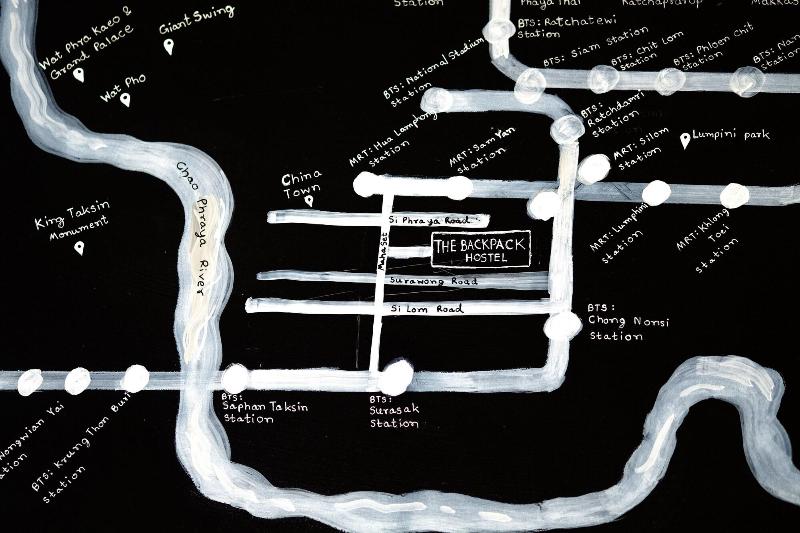 Station
Phaya Thai
Ratchaprarop
Makkas
Wat Phra Kaeo &
Grand Palace
Giant Swing
Wat Pho
BTS: Ratchatewi
Station
BTS: National Stadium
Station
BTS: Siam Station
BTS: Chit Lom
Station
BTS: Phloen Chit
Station
BTS: Nan
Station
BTS:
Ratchdamri
Station
MRT: Silom
Station
Lumpini park
MRT: Hua Lamphong
Station
MRT: Sam Yan
Station
China
Town
Chao Phraya River
King Taksin
Monument
Si Phraya Road
Mahaset
THE BACKPACK
HOSTEL
Surawong Road
Si Lom Road
MRT: Lumphini
Station
MRT: Khlong
Toei
Station
BTS:
Chong Nonsi
Station
BTS:
Saphan Taksin
Station
BTS:
Surasak
Station
Wongwian Yai
ation
BTS: Krung Thon Buri
Station